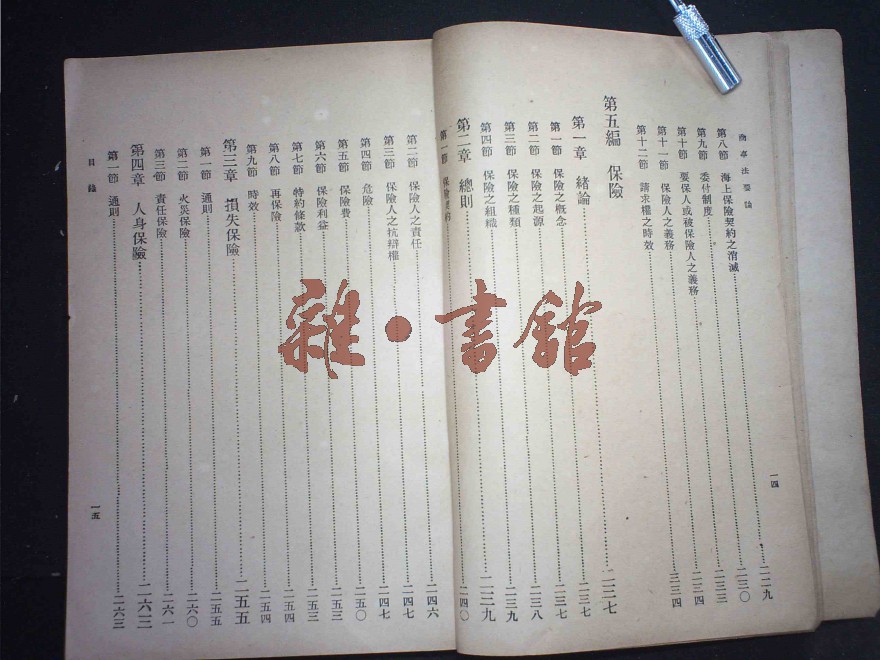 商事法要論
第八節 海上保險契約之消滅……二二九
第九節 委付制度……二三〇
第十節 要保人或被保險人之義務……二三三
第十一節 保險人之義務……二三四
第十二節 請求權之時效……三三四
第五編 保險……二三七
第一章 緒論……二三七
第一節 保險之概念……二三七
第二節 保險之起源……二三八
第三節 保險之種類……二三九
第四節 保險之組織……二三九
第二章 總則……二四〇
一四
第一節 保險
第二節 保險人之責任……二四六
第三節 保險人之抗辯權……二四七
第四節 危險……二四七
第五節 保險費……二五〇
第六節 保險利益……二五三
第七節 特約條款……二五三
第八節 再保險……二五四
第九節 時效……二五四
第三章 損失保險……二五五
第一節 通則……二五五
第二節 火災保險……二六〇
第三節 責任保險……二六一
第四章 人身保險……二六三
第一節 通則……二六三
目錄
一五
雜·書館